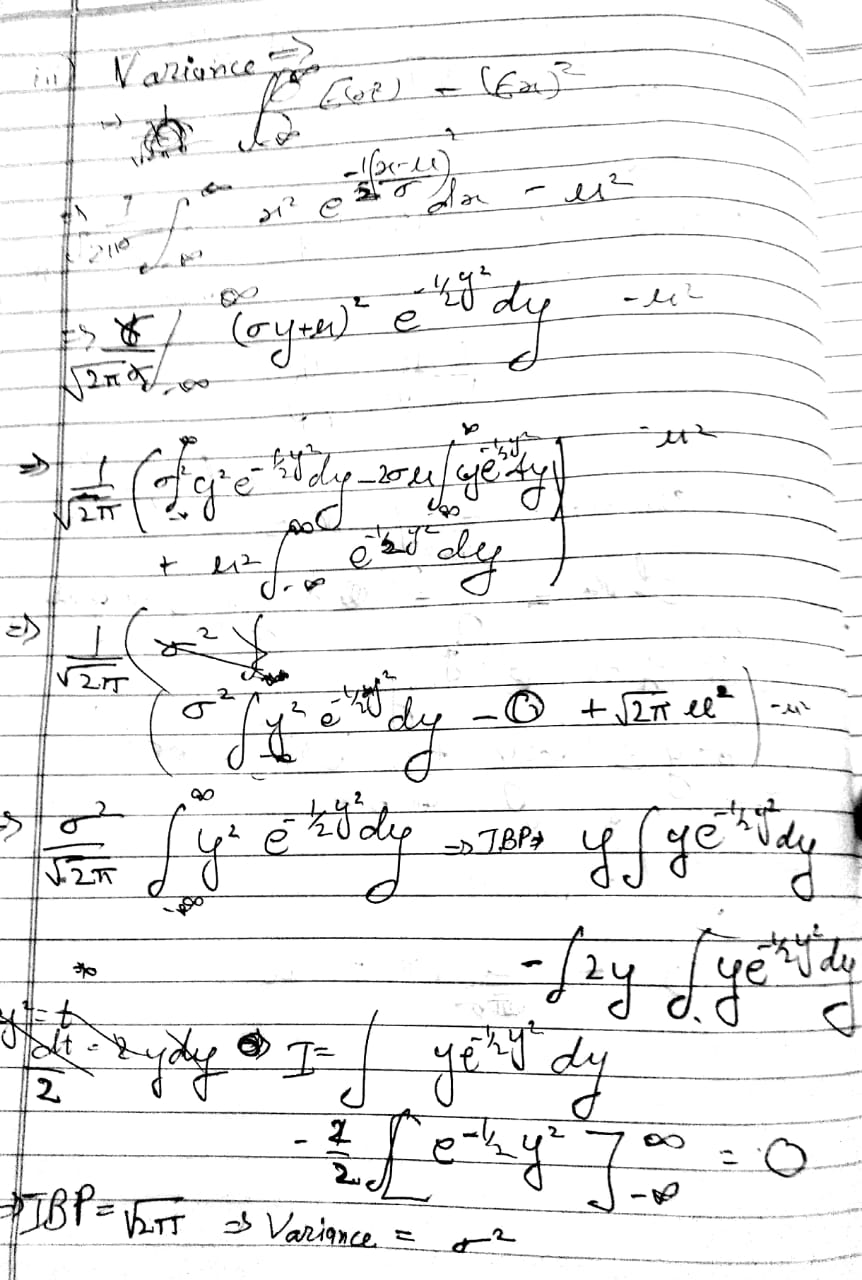 iii) Variance ⇒
⇒ ∫ E(x²) - (Ex)²
⇒ ∫_{-∞}^{∞} x² e^{-1/2((x-μ)/σ)²} dx - μ²
⇒ /√2π ∫_{-∞}^{∞} (σy+μ)² e^{-1/2 y²} dy - μ²
⇒ 1/√2π (σ² ∫ y² e^{-1/2 y²} dy - 2σμ ∫_{-∞}^{∞} y e^{-1/2 y²} dy - μ²
+ μ² ∫_{-∞}^{∞} e^{-1/2 y²} dy)
⇒ 1/√2π
(σ² ∫ y² e^{-1/2 y²} dy - 0 + √2π μ²) - μ²
⇒ σ²/√2π ∫_{-∞}^{∞} y² e^{-1/2 y²} dy ⇒ IBP⇒ y ∫ y e^{-1/2 y²} dy
- ∫ 2y ∫ y e^{-1/2 y²} dy
y² = t
dt/2 = 2ydy ⇒ I = ∫ y e^{-1/2 y²} dy
- 2/2 [e^{-1/2 y²}]_{-∞}^{∞} = 0
⇒ IBP = √2π ⇒ Variance = σ²